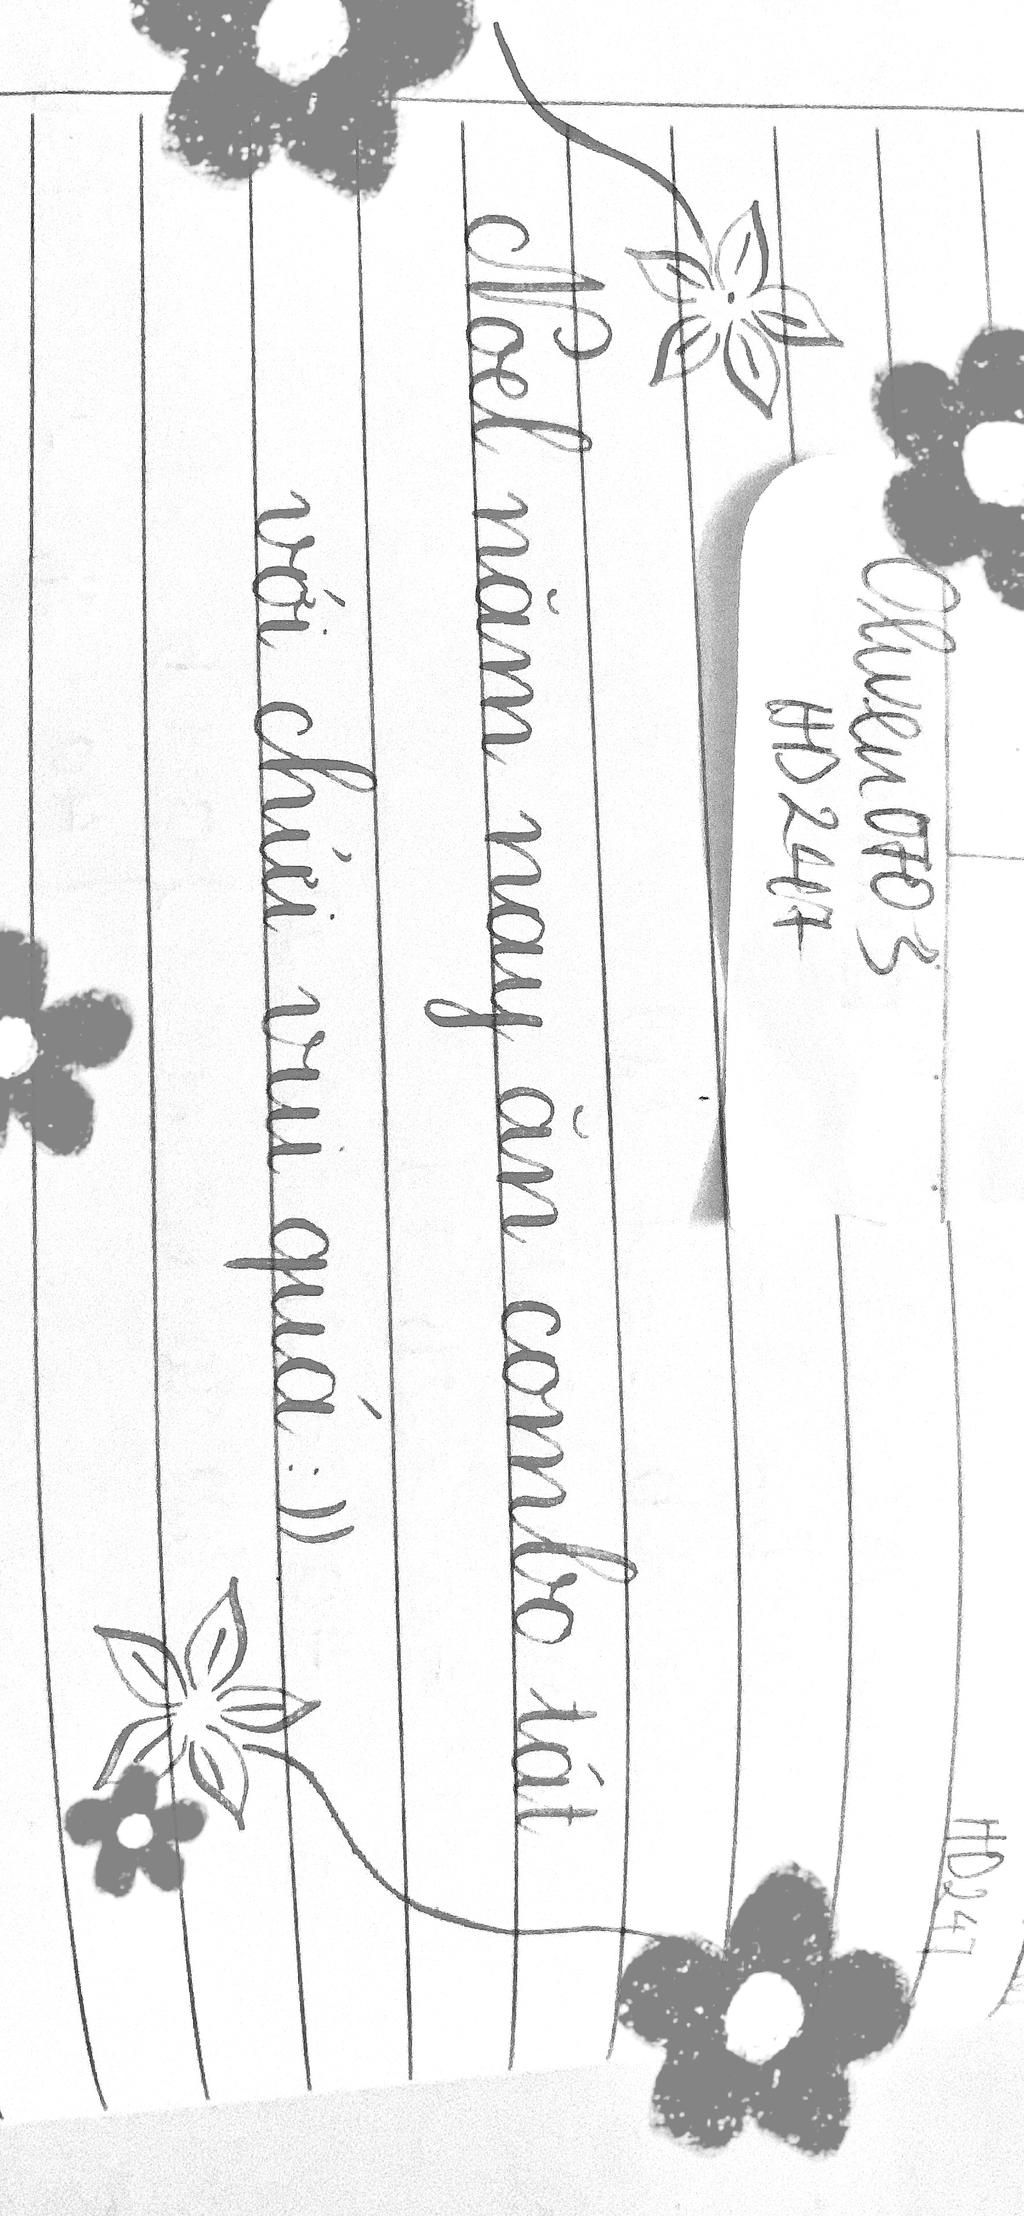 OliwenOTO3
HD247
HD247
Noel năm nay ăn combo tát
với chửi vui quá :))